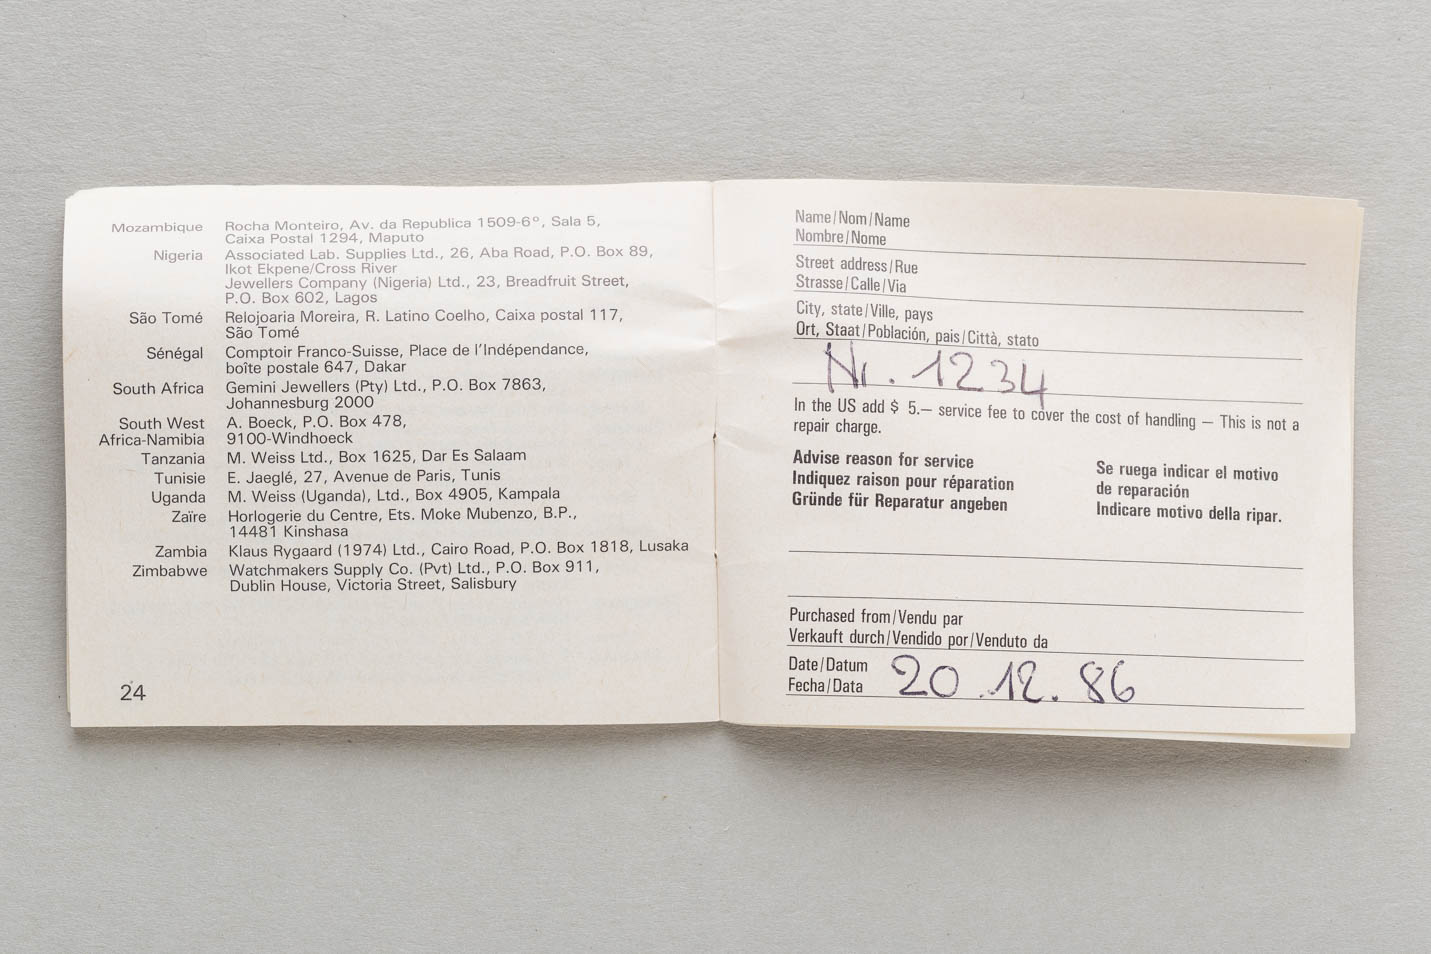 Mozambique Rocha Monteiro, Av. da Republica 1509-6°, Sala 5,
Caixa Postal 1294, Maputo
Nigeria Associated Lab. Supplies Ltd., 26, Aba Road, P.O. Box 89,
Ikot Ekpene/Cross River
Jewellers Company (Nigeria) Ltd., 23, Breadfruit Street,
P.O. Box 602, Lagos
São Tomé Relojoaria Moreira, R. Latino Coelho, Caixa postal 117,
São Tomé
Sénégal Comptoir Franco-Suisse, Place de l'Indépendance,
boîte postale 647, Dakar
South Africa Gemini Jewellers (Pty) Ltd., P.O. Box 7863,
Johannesburg 2000
South West A. Boeck, P.O. Box 478,
Africa-Namibia 9100-Windhoeck
Tanzania M. Weiss Ltd., Box 1625, Dar Es Salaam
Tunisie E. Jaeglé, 27, Avenue de Paris, Tunis
Uganda M. Weiss (Uganda), Ltd., Box 4905, Kampala
Zaïre Horlogerie du Centre, Ets. Moke Mubenzo, B.P.,
14481 Kinshasa
Zambia Klaus Rygaard (1974) Ltd., Cairo Road, P.O. Box 1818, Lusaka
Zimbabwe Watchmakers Supply Co. (Pvt) Ltd., P.O. Box 911,
Dublin House, Victoria Street, Salisbury
24
Name/Nom/Name
Nombre/Nome
Street address/Rue
Strasse/Calle/Via
City, state/Ville, pays
Ort, Staat/Población, pais/Città, stato
Nr. 1234
In the US add $ 5.— service fee to cover the cost of handling — This is not a
repair charge.
Advise reason for service
Indiquez raison pour réparation
Gründe für Reparatur angeben
Se ruega indicar el motivo
de reparación
Indicare motivo della ripar.
Purchased from/Vendu par
Verkauft durch/Vendido por/Venduto da
Date/Datum
Fecha/Data
20.12.86